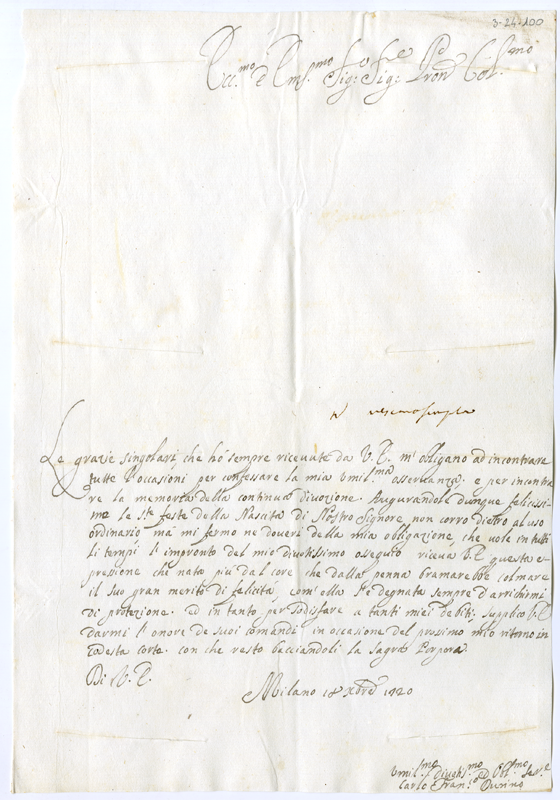 3-24-100
Ecc.mo e Em.mo Sig.re Sig.re Pron Col.mo
Le grazie singolari, che hò sempre riceuute da V.E. m'obligano ad incontrare
tutte l'occasioni per confessare la mia Vmil.ma osseruanza. e per incontra
re la memoria della continua diuozione. Augurandole dunque felicissi-
me le S.te feste della Nascita di Nostro Signore, non corro dietro al uso
ordinario mà mi fermo ne doueri della mia obligazione, che uole in tutti
li tempi l'impronto del mio diuotissimo osequio riceua V.E. questa es
presione che nata più dal core, che dalla penna bramarebbe colmare
il suo gran merito di felicità, com'ella s'è degnata sempre d'arrichirmi
di protezione. ed in tanto per sodisfare a tanti miei debiti, supplico V.E.
darmi l'onore de suoi comandi in occasione del prossimo mio ritorno in
codesta corte. con che resto bacciandoli la Sagra Porpora.
Di V.E.
Milano 18 Xbre 1720
Vmil.mo Diuotis.mo ed Obl.mo Ser.e
Carlo Fran.o Durino